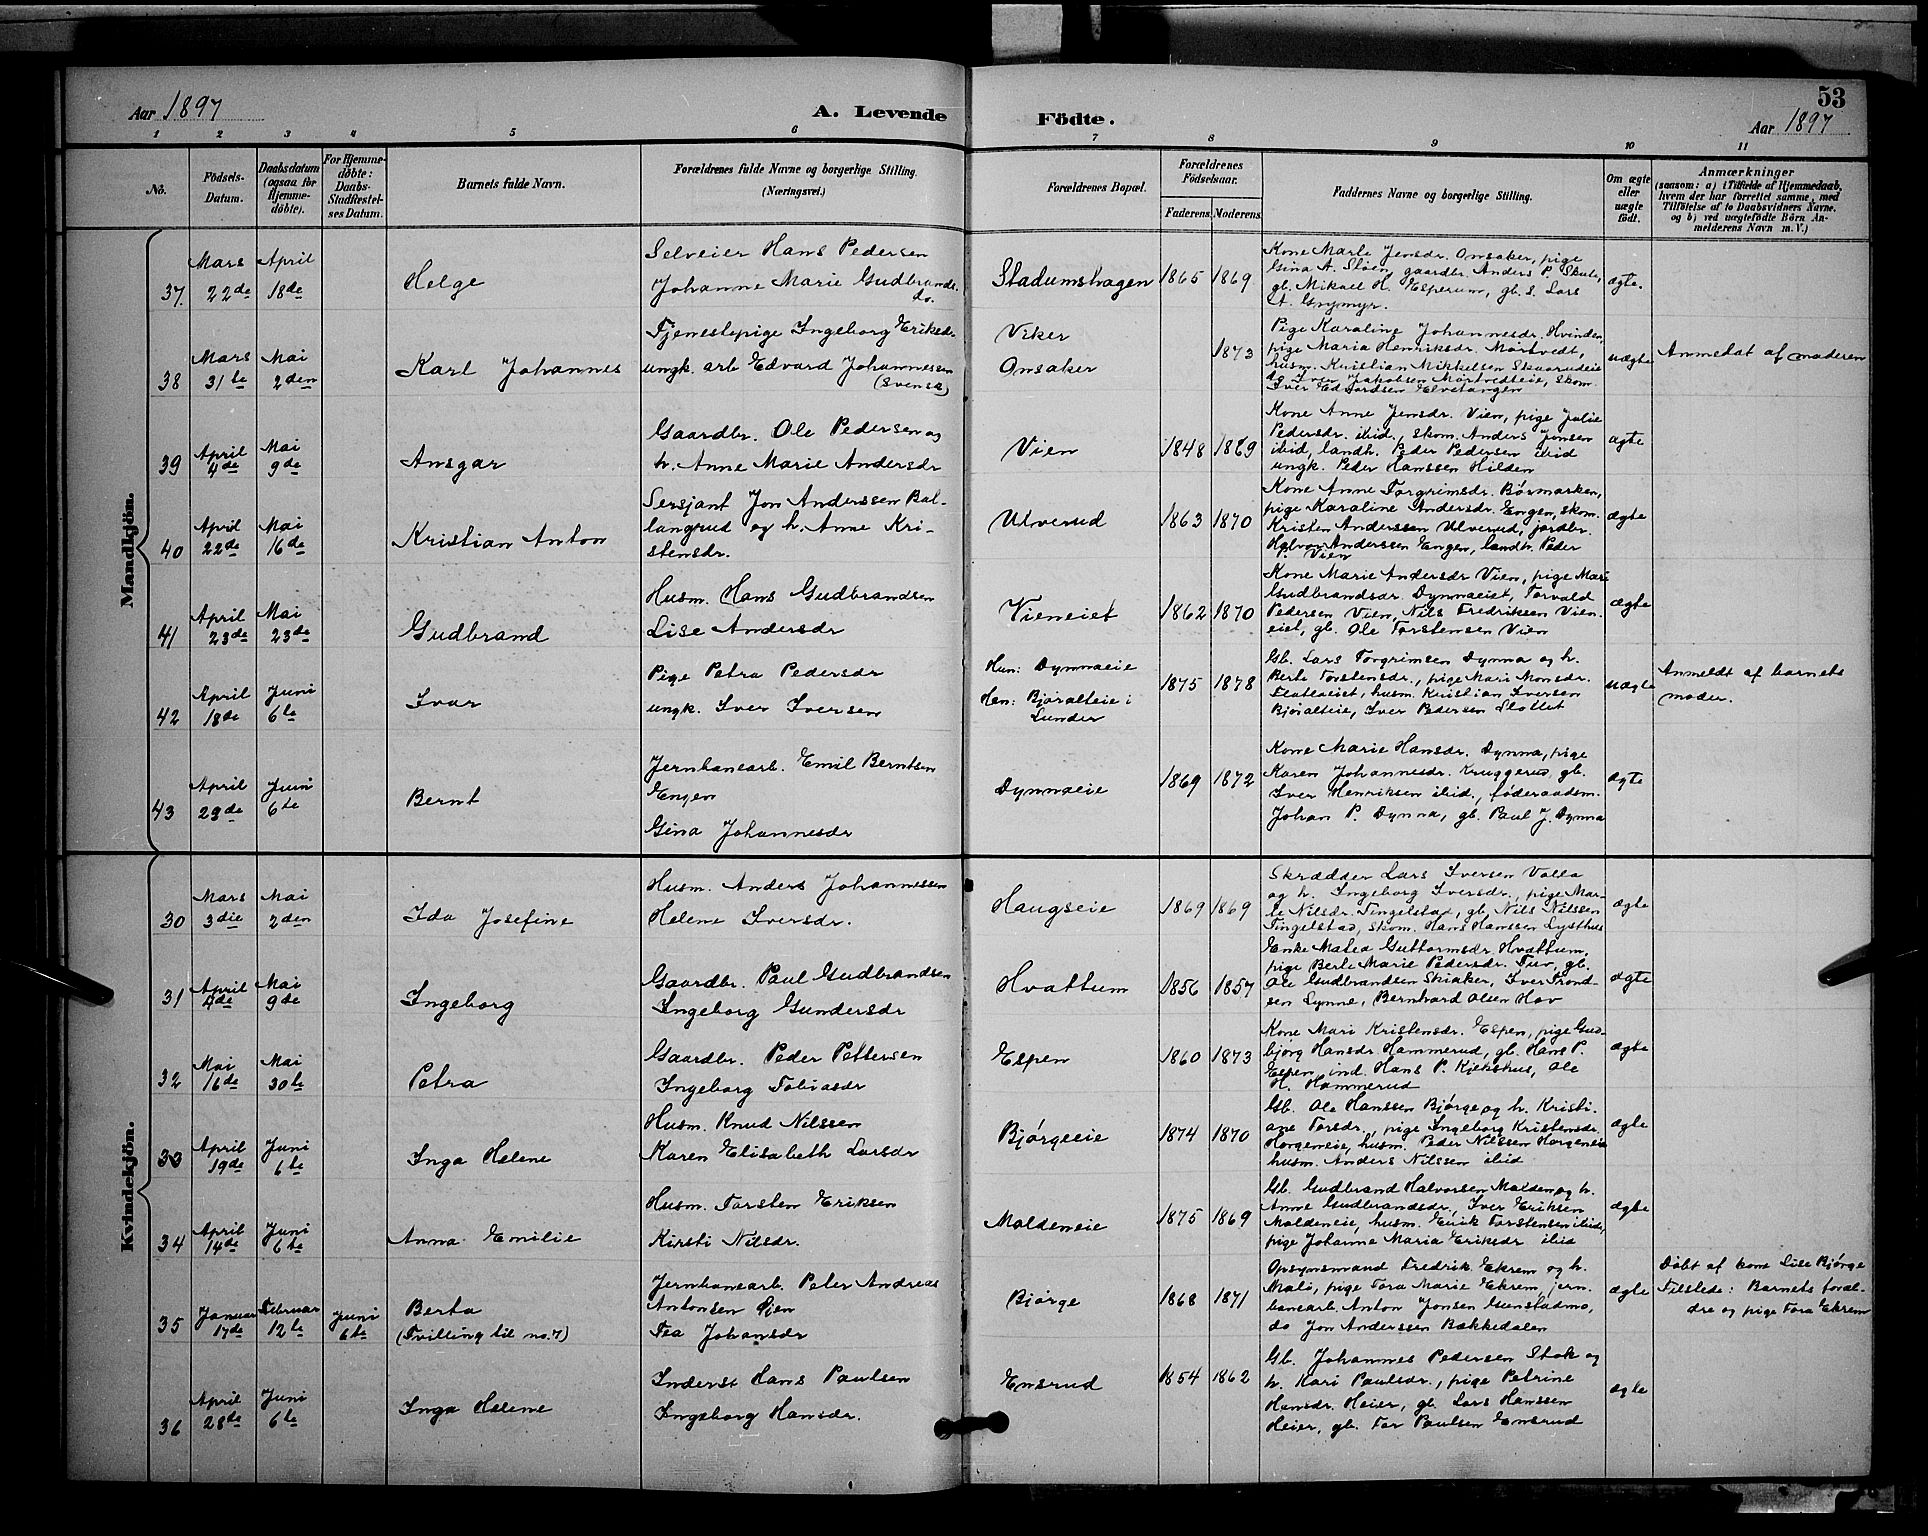 53
Aar 1897 A. Levende Födte. Aar 1897
1 2 3 4 5 6 7 8 9 10 11
No.
Födsels-Datum.
Daabsdatum (ogsaa for Hjemme-döbte).
For Hjemme-döbte: Daabs-Stadfæstel-ses Datum.
Barnets fulde Navn.
Forældrenes fulde Navne og borgerlige Stilling. (Næringsvei.)
Forældrenes Bopæl.
Forældrenes Födselsaar.
Faderens. Moderens.
Faddernes Navne og borgerlige Stilling.
Om ægte eller uægte födt.
Anmærkninger
(saasom: a) i Tilfælde af Hjemmedaab,
hvem der har forrettet samme, med
Tilföielse af to Daabsvidners Navne,
og b) ved uægtefödte Börn An-
melderens Navn m. V.)
Mandkjön.
37. Mars 22de April 18de
Helge
Selveier Hans Pedersen
Johanne Marie Gudbrands-
dr.
Stadumshagen 1865 1869
Kone Marte Jensdr. Onsaker, pige
Gina A. Støen, gaardbr. Anders P. Skute,
gb. Mikael H. Esperum, gb. s. Lars
A. Grymyr.
ægte.
38 Mars 31te Mai 2den
Karl Johannes
Tjenestepige Ingeborg Eriksdr
ungk. arb. Edvard Johannessen
(Svensk)
Viker
Onsaker
1873
Pige Karoline Johannesdr. Hvinden,
pige Maria Henriksdr. Mørtvedt,
husm. Kristian Mikkelsen Skaarudeie
do Iver Jakobsen Mørtvedteie, skom.
Iver Edvardsen Elvetangen
uægte
Anmeldt af moderen
39 April 4de Mai 9de
Ansgar
Gaardbr. Ole Pedersen og
h. Anne Marie Andersdr
Vien 1848 1869
Kone Anne Jensdr. Vien, pige Julie
Pedersdr. ibid., skom. Anders Jonsen
ibid, landh. Peder Pedersen ibid
ungk. Peder Hanssen Hilden
ægte
40 April 22de Mai 16de
Kristian Anton
Sersjant Jon Anderssen Bal-
langrud og h. Anne Kri-
stensdr.
Ulverud 1863 1870
Kone Anne Torgrimsdr. Børmarken,
pige Karoline Andersdr. Engen, skom.
Kristen Anderssen Ulverud, jordbr.
Halvor Anderssen Engen, landh. Peder
P. Vien
ægte
41 April 23de Mai 23de
Gudbrand
Husm. Hans Gudbrandsen
Lise Andersdr
Vieneiet 1862 1870
Kone Marie Andersdr Vien, pige Mari
Gudbrandsdr. Dynnaeiet, Torvald
Pedersen Vien, Nils Fredriksen Vien-
eiet, gb. Ole Torstensen Vien
ægte
42 April 18de Juni 6te
Ivar
Pige Petra Pedersdr
ungk. Iver Iversen
Hun: Dynnaeie
Han: Bjøralteie i
Lunder
1875 1878
Gb. Lars Torgrimsen Dynna og h.
Berte Torstensdr., pige Mari Monsdr.
Flateeiet, husm. Kristian Iversen
Bjøralteie, Iver Pedersen Slottet
uægte
Anmeldt af barnets
moder.
43 April 29de Juni 6te
Bernt
Jernbanearb. Emil Berntsen
Engen
Gina Johannesdr
Dynnaeie 1869 1872
Kone Marie Hansdr. Dynna, pige
Karen Johannesdr. Kruggerud, gb.
Iver Henriksen ibid., føderaadsm.
Johan P. Dynna, gb. Paul J. Dynna
ægte
Kvindekjön.
30 Mars 3die Mai 2den
Ida Josefine
Husm. Anders Johannessen
Helene Iversdr.
Haugseie 1869 1869
Skrædder Lars Iversen Volla
og h. Ingeborg Iversdr., pige Mar-
te Nilsdr. Tingelstad, gb. Nils Nilssen
Tingelstad, skom. Hans Hanssen Lysthus
ægte
31 April 4de Mai 9de
Ingeborg
Gaardbr. Paul Gudbrandsen
Ingeborg Gundersdr
Hvattum 1856 1857
Enke Matea Guttormsdr. Hvattum,
pige Berte Marie Pedersdr. Tuv, gb.
Ole Gudbrandsen Skiaker, Iver Trond-
sen Lynne, Bernhard Olsen Hov
ægte
32 Mai 16de Mai 30te
Petra
Gaardbr. Peder Pettersen
Ingeborg Tobiasdr
Espen 1860 1873
Kone Mari Kristensdr. Espen, pige Gud-
bjørg Hansdr Hammerud, gb. Hans P.
Espen, ind. Hans P. Kjekshus, Ole
H. Hammerud
ægte
33 April 19de Juni 6te
Inga Helene
Husm. Knud Nilssen
Karen Elisabeth Larsdr
Bjørgeeie 1874 1870
Gb. Ole Hanssen Bjørge og h. Kristi-
ane Torsdr., pige Ingeborg Kristensdr.
Horgeneie, husm. Peder Nilssen Horgeneie
husm. Anders Nilssen ibid
ægte
34 April 14de Juni 6te
Anna Emilie
Husm. Torsten Eriksen
Kirsti Nilsdr.
Moldeneie 1875 1869
Gb. Gudbrand Halvorsen Molden og h.
Anne Gudbrandsdr, Iver Eriksen
Moldeneie, husm. Erik Torstensen ibid,
pige Johanne Maria Eriksdr ibid
ægte
35 Januar 17de Februar 12te Juni 6te
Berta
(Tvilling til no. 7)
Jernbanearb. Peter Andreas
Antonsen Øien
Tea Johansdr
Bjørge 1868 1871
Opsynsmand Fredrik Ekrem og h.
Mali, pige Tora Marie Ekrem, jern-
banearb. Anton Jonsen Gunstadmo,
do Jon Anderssen Bækkedalen
ægte
Døbt af kone Lise Bjørge
Tilstede: Barnets foræl-
dre og pige Tora Ekrem
36 April 28de Juni 6te
Inga Helene
Inderst Hans Paulsen
Ingeborg Hansdr.
Ensrud 1854 1862
Gb. Johannes Pedersen Stok og
h. Kari Paulsdr., pige Petrine
Hansdr. Heier, gb. Lars Hanssen
Heier, gb. Tor Paulsen Ensrud
ægte